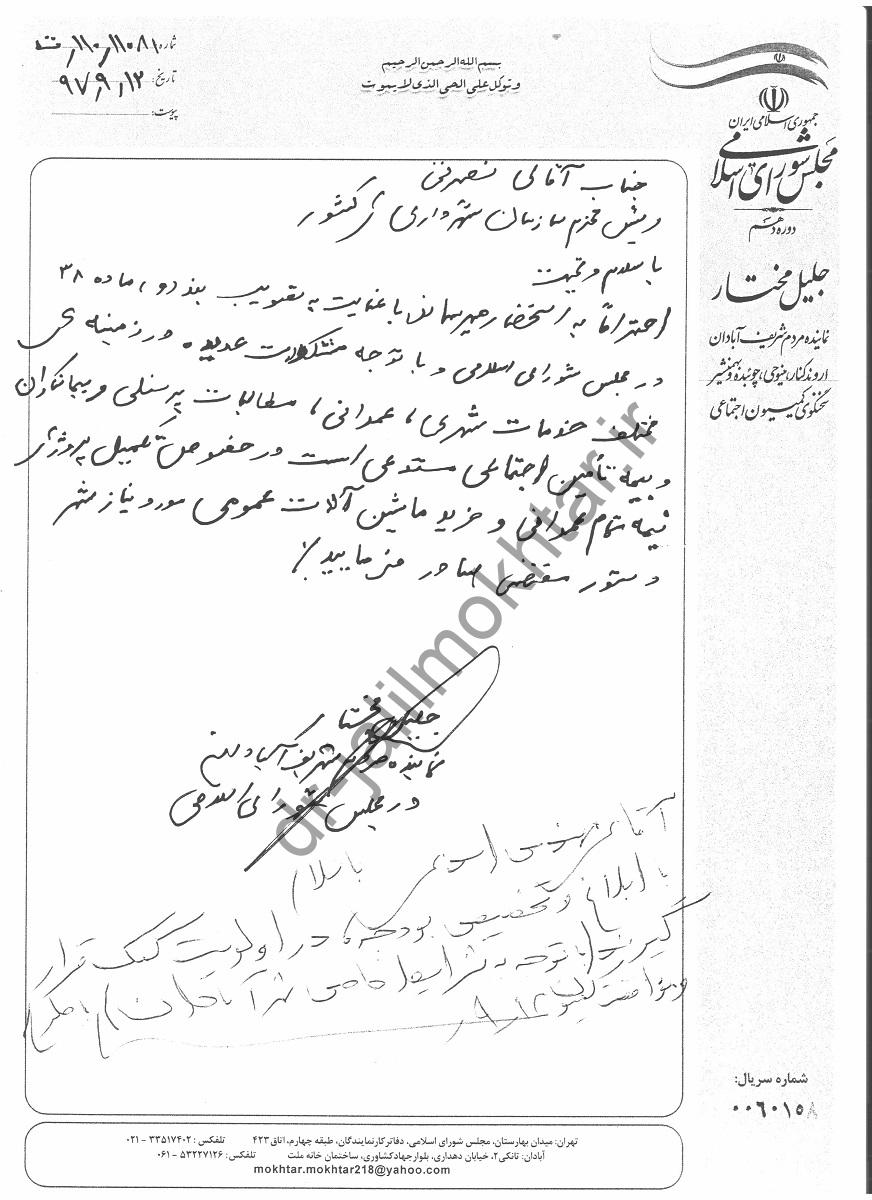 شماره: ۱۱۰/۱۱۰۸۱/ت
تاریخ: ۹۷/۹/۱۲
پیوست:
بسم الله الرحمن الرحیم
و توکل علی الحی الذی لایموت
جمهوری اسلامی ایران
مجلس شورای اسلامی
دوره دهم
جلیل مختار
نماینده مردم شریف آبادان
اروندکنار، مینوحی، چوئبده و بهمنشیر
سخنگوی کمیسیون اجتماعی
جناب آقای
محترم سازمان شهرداری کشور
با سلام و تحیت
احتراماً به استحضار میرساند با عنایت به تصویب بند دو، ماده ۳۸
در مجلس شورای اسلامی و با توجه مشکلات عدیده در زمینه ی
مختلف خدمات شهری، عمرانی، مطالبات پرسنلی و پیمانکاران
و بیمه تأمین اجتماعی مستدعی است در خصوص تکمیل پروژه
نیمه تمام عمرانی و خرید ماشین آلات عمومی مورد نیاز شهر
دستور مقتضی صادر فرمایید.
جلیل مختار
نماینده مردم شریف آبادان
در مجلس شورای اسلامی
آقای مهندس با سلام
با ابلاغ و تخصیص بودجه، در اولویت کمک قرار
گیرند (با توجه به شرایط خاص شهر آبادان)
dr-jalilmokhtar.ir
شماره سریال:
۰۰۶۰۱۵۸
تهران: میدان بهارستان، مجلس شورای اسلامی، دفاتر کار نمایندگان، طبقه چهارم، اتاق ۴۲۳ تلفکس: ۳۳۵۱۷۴۰۲ - ۰۲۱
آبادان: تانکی۲، خیابان دهداری، بلوار جهاد کشاورزی، ساختمان خانه ملت تلفکس: ۵۳۲۲۷۱۲۶ - ۰۶۱
mokhtar.mokhtar218@yahoo.com